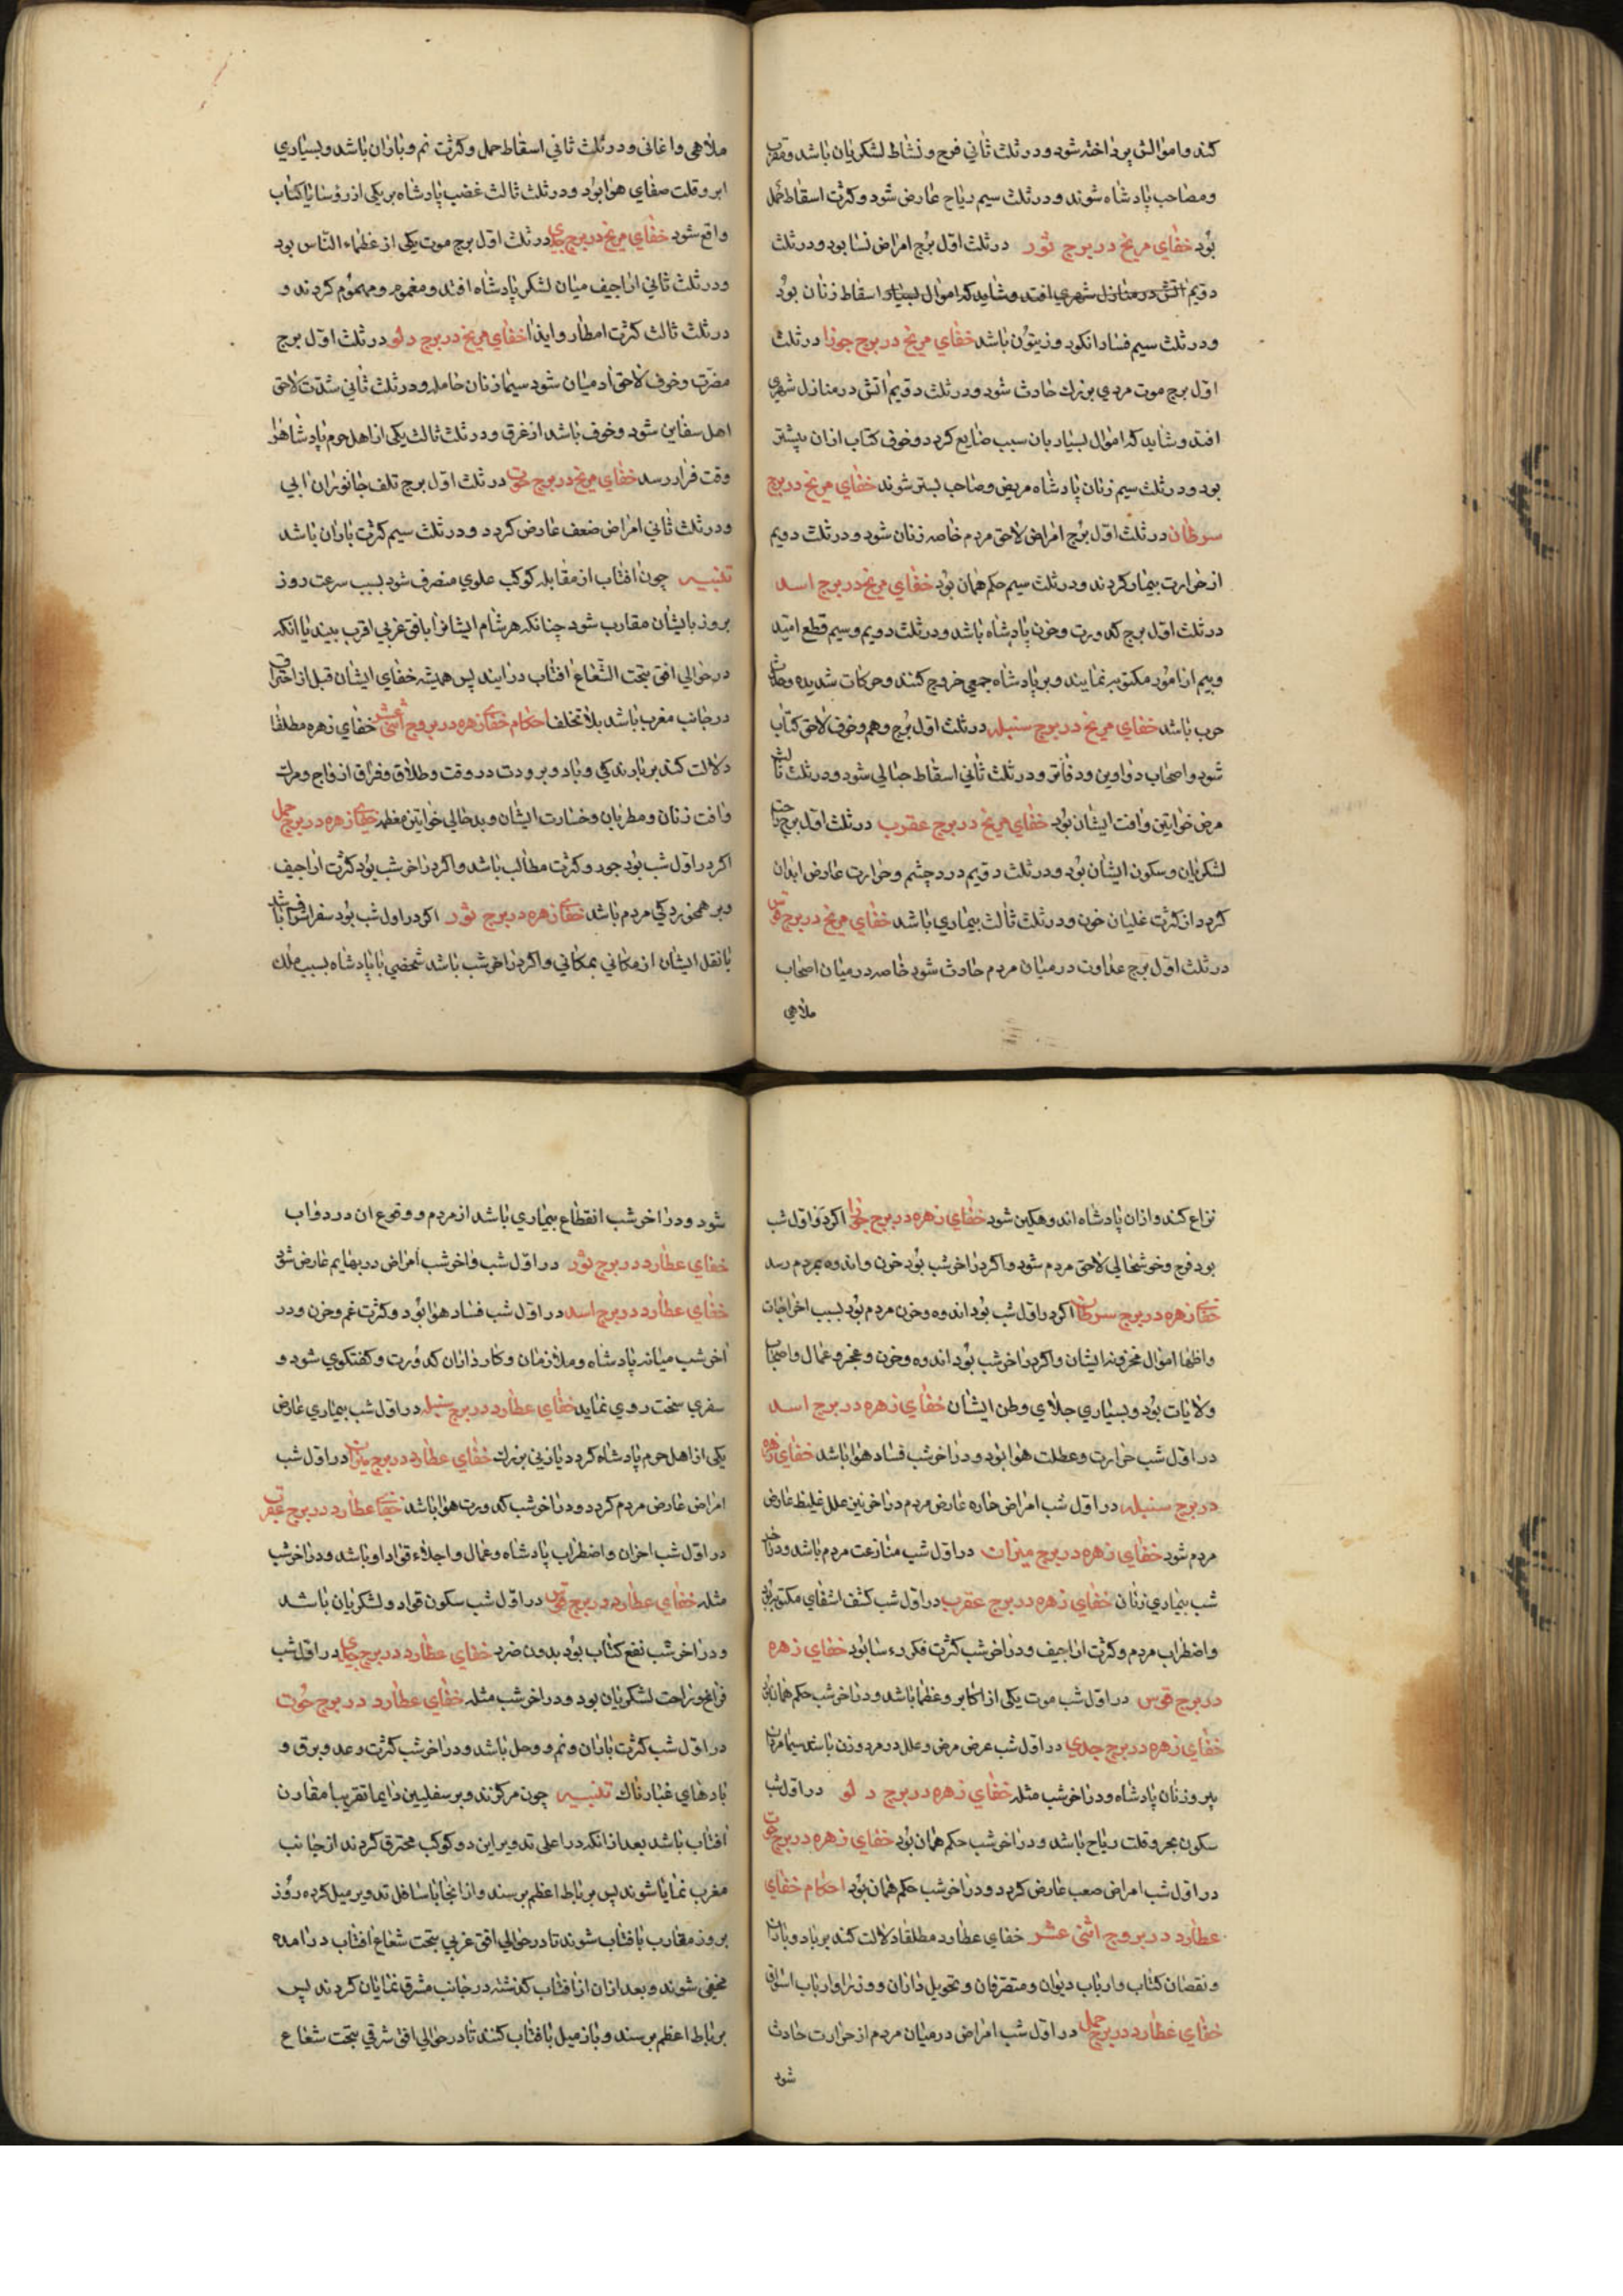 کند و اموالش پرداخته شود و در ثلث ثانی فرح و نشاط لشکریان باشد و مقرب
و مصاحب پادشاه شوند و در ثلث سیم ریاح عارض شود و کثرت اسقاط حمل
بود خفای مریخ در برج ثور در ثلث اول برج امراض نسا بود و در ثلث
دویم اتش در منازل شهری افتد و شاید که اموال بسیار اسقاط زنان بود
و در ثلث سیم فساد انکور و زیتون باشد خفای مریخ در برج جوزا در ثلث
اول برج موت مردی بزرك حادث شود و در ثلث دویم اتش در منازل شهری
افتد و شاید که اموال بسیار بان سبب ضایع کردد و خوف کتاب ازان پیشتر
بود و در ثلث سیم زنان پادشاه مریض و صاحب بستر شوند خفای مریخ در برج
سرطان در ثلث اول برج امراض لاحق مردم خاصه زنان شود و در ثلث دویم
از حرارت بیمار کردند و در ثلث سیم حکم همان بود خفای مریخ در برج اسد
در ثلث اول برج کدورت و حزن پادشاه باشد و در ثلث دویم و سیم قطع امید
و بیم از امور مکتوبه نمایند و بر پادشاه جمعی خروج کنند و حرکات شدیده و حادث
حرب باشد خفای مریخ در برج سنبله در ثلث اول برج وهم و خوف لاحق کتاب
شود و اصحاب دواوین و دفاتر و در ثلث ثانی اسقاط حبالی شود و در ثلث ثالث
مرض خواتین و افت ایشان بود خفای مریخ در برج عقرب در ثلث اول برج راحت
لشکریان و سکون ایشان بود و در ثلث دویم درد چشم و حرارت عارض ابدان
کردد از کثرت غلیان خون و در ثلث ثالث بیماری باشد خفای مریخ در برج قوس
در ثلث اول برج عداوت در میان مردم حادث شود خاصه در میان اصحاب
ملاهی
ملاهی و اغانی و در ثلث ثانی اسقاط حمل و کثرت نم و باران باشد و بسیاری
ابر و قلت صفای هوا بود و در ثلث ثالث غضب پادشاه بر یکی از رؤسا یا کتاب
واقع شود خفای مریخ در برج جدی در ثلث اول برج موت یکی از عظماء الناس بود
و در ثلث ثانی اراجیف میان لشکر پادشاه افتد و مغموم و مهموم کردند و
در ثلث ثالث کثرت امطار و ایذا خفای مریخ در برج دلو در ثلث اول برج
مضرت و خوف لاحق ادمیان شود سیما زنان حامله و در ثلث ثانی شدت لاحق
اهل سفاین شود و خوف باشد از غرق و در ثلث ثالث یکی از اهل حرم پادشاه را
وقت فرار رسد خفای مریخ در برج حوت در ثلث اول برج تلف جانوران ابی
و در ثلث ثانی امراض ضعف عارض کردد و در ثلث سیم کثرت باران باشد
تنبیه چون افتاب از مقابله کوکب علوی منصرف شود بسبب سرعت روز
بروز بایشان مقارب شود چنانکه هر شام ایشانرا بافق غربی اقرب بیند یا انکه
در حوالی افق بتحت الشعاع افتاب درایند پس همیشه خفای ایشان قبل از احتراق
در جانب مغرب باشد بلا تخلف احکام خفای زهره در بروج اثنی عشر خفای زهره مطلقا
دلالت کند بر بارندکی و باد و برودت در وقت و طلاق و فراق ازواج و مرك
و افت زنان و مطربان و خسارت ایشان و بدحالی خواتین معظمه خفای زهره در برج حمل
اکر در اول شب بود جور و کثرت مطالب باشد و اکر در اخر شب بود کثرت اراجیف
و برهمخوردکی مردم باشد خفای زهره در برج ثور اکر در اول شب بود سفر اشراف باشد
یا نقل ایشان از مکانی بمکانی و اکر در اخر شب باشد شخصی با پادشاه بسبب ملك
نزاع کند و ازان پادشاه اندوهکین شود خفای زهره در برج جوزا اکر در اول شب
بود فرح و خوشحالی لاحق مردم شود و اکر در اخر شب بود حزن و اندوه بمردم رسد
خفای زهره در برج سرطان اکر در اول شب بود اندوه و حزن مردم بود بسبب اخراجات
و اظهار اموال مخزونه ایشان و اکر در اخر شب بود اندوه و حزن و عجز و عمال و اصحاب
ولایات بود و بسیاری جلای وطن ایشان خفای زهره در برج اسد
در اول شب حرارت و عطلت هوا بود و در اخر شب فساد هوا باشد خفای زهره
در برج سنبله در اول شب امراض حاره عارض مردم در اخر نیز علل غلیظ عارض
مردم شود خفای زهره در برج میزان در اول شب منازعت مردم باشد و در اخر
شب بیماری زنان خفای زهره در برج عقرب در اول شب کشف اشفای مکتوبه بود
و اضطراب مردم و کثرت اراجیف و در اخر شب کثرت فکر رءسا بود خفای زهره
در برج قوس در اول شب موت یکی از اکابر و عظما باشد و در اخر شب حکم همان بود
خفای زهره در برج جدی در اول شب عرض مرض و علل در مرد و زن باشد سیما مردمان
پیر و زنان پادشاه و در اخر شب مثله خفای زهره در برج دلو در اول شب
سکون بحر و قلت ریاح باشد و در اخر شب حکم همان بود خفای زهره در برج حوت
در اول شب امراض صعب عارض کردد و در اخر شب حکم همان بود احکام خفای
عطارد در بروج اثنی عشر خفای عطارد مطلقا دلالت کند بر باد و باران
و نقصان کتاب و ارباب دیوان و متصرفان و تحویل داران و وزرا و ارباب اسواق
خفای عطارد در برج حمل در اول شب امراض در میان مردم از حرارت حادث
شود
شود و در اخر شب انقطاع بیماری باشد از مردم و وقوع ان در دواب
خفای عطارد در برج ثور در اول شب و اخر شب امراض در بهایم عارض شود
خفای عطارد در برج اسد در اول شب فساد هوا بود و کثرت غم و حزن و در
اخر شب میانه پادشاه و ملازمان و کارداران کدورت و کفتکوی شود و
سفری سخت روی نماید خفای عطارد در برج سنبله در اول شب بیماری عارض
یکی از اهل حرم پادشاه کردد یا زنی بزرك خفای عطارد در برج میزان در اول شب
امراض عارض مردم کردد و در اخر شب کدورت هوا باشد خفای عطارد در برج عقرب
در اول شب احزان و اضطراب پادشاه و عمال و اجلاء قواد او باشد و در اخر شب
مثله خفای عطارد در برج قوس در اول شب سکون قواد و لشکریان باشد
و در اخر شب نفع کتاب بود بدون ضرر خفای عطارد در برج جدی در اول شب
فرح و راحت لشکریان بود و در اخر شب مثله خفای عطارد در برج حوت
در اول شب کثرت باران و نم و وحل باشد و در اخر شب کثرت رعد و برق و
بادهای غبارناك تنبیه چون مرکز تدویر سفلیین دایما تقریبا مقارن
افتاب باشد بعد از انکه در اعلی تدویر این دو کوکب محترق کردند از جانب
مغرب نمایا شوند پس برباط اعظم برسند و از انجا باسافل تدویر میل کرده روز
بروز مقارب بافتاب شوند تا در حوالی افق غربی بتحت شعاع افتاب درامده
مخفی شوند و بعد ازان از افتاب کذشته در جانب مشرق نمایان کردند پس
برباط اعظم برسند و باز میل بافتاب کنند تا در حوالی افق شرقی بتحت شعاع